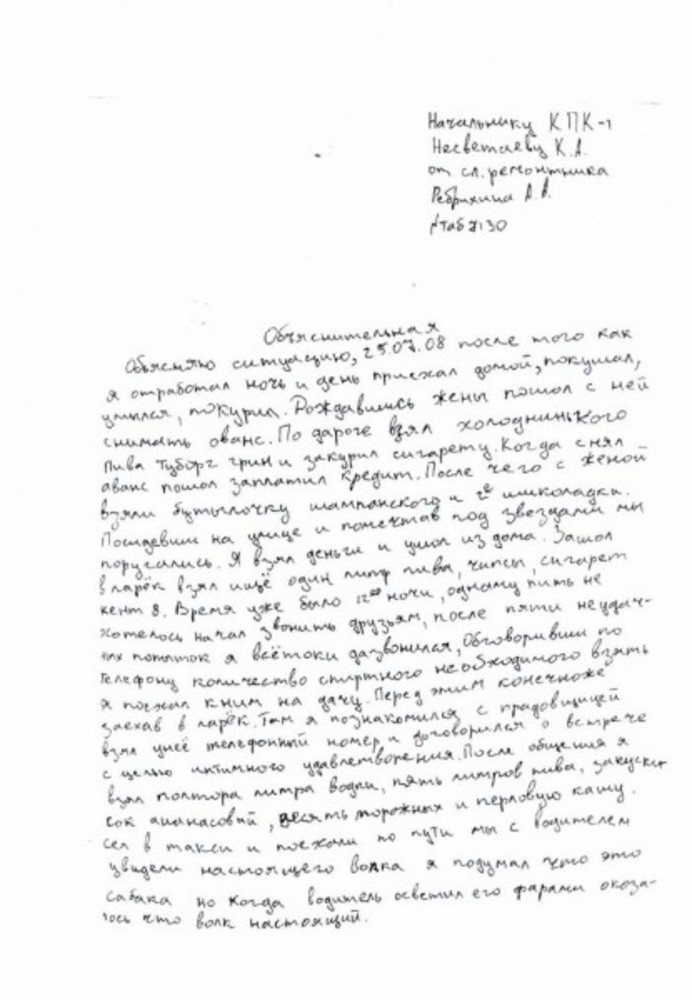 Начальнику КПК-1
Несветаеву К.А.
от сл.ремонтника
Ребрихина А.А.
№таб 7130
Объяснительная
Обьясняю ситуацию, 25.07.08 после того как
я отработал ночь и день приехал домой, покушал,
умылся, покурил. Рождавшись жены пошол с ней
снимать ованс. По дароге взял холоднинького
пива Туборг грин и закурил сигарету. Когда снял
аванс пошол заплатил кредит. После чего с женой
взяли бутылочку шампанского и 2е шиколадки.
Посидевши на улице и помечтав под звездами мы
поругались. Я взял деньги и ушол из дома. Зашол
в ларёк взял ищё один литр пива, чипсы, сигарет
кент 8. Время уже было 12оо ночи, одному пить не
хотелось начал звонить друзьям, после пяти неудач-
ных попыток я всётоки дазвонился, Обговоривши по
телефону количество спиртного необходимого взять
я поехал кним на дачу. Перед этим конечноже
заехав в ларёк. Там я познакомился с прадовщицей
взял унеё телефонный номер и договорился о встрече
с целью интимного удавлетворения. После общения я
взял полтора литра водки, пять литров пива, закуски
сок ананасовый, десять морожных и перловую кашу.
сел в такси и поехали по пути мы с водителем
увидели настоящего волка я подумал что это
сабака но когда водитель осветил его фарами окоза-
лось что волк настоящий.